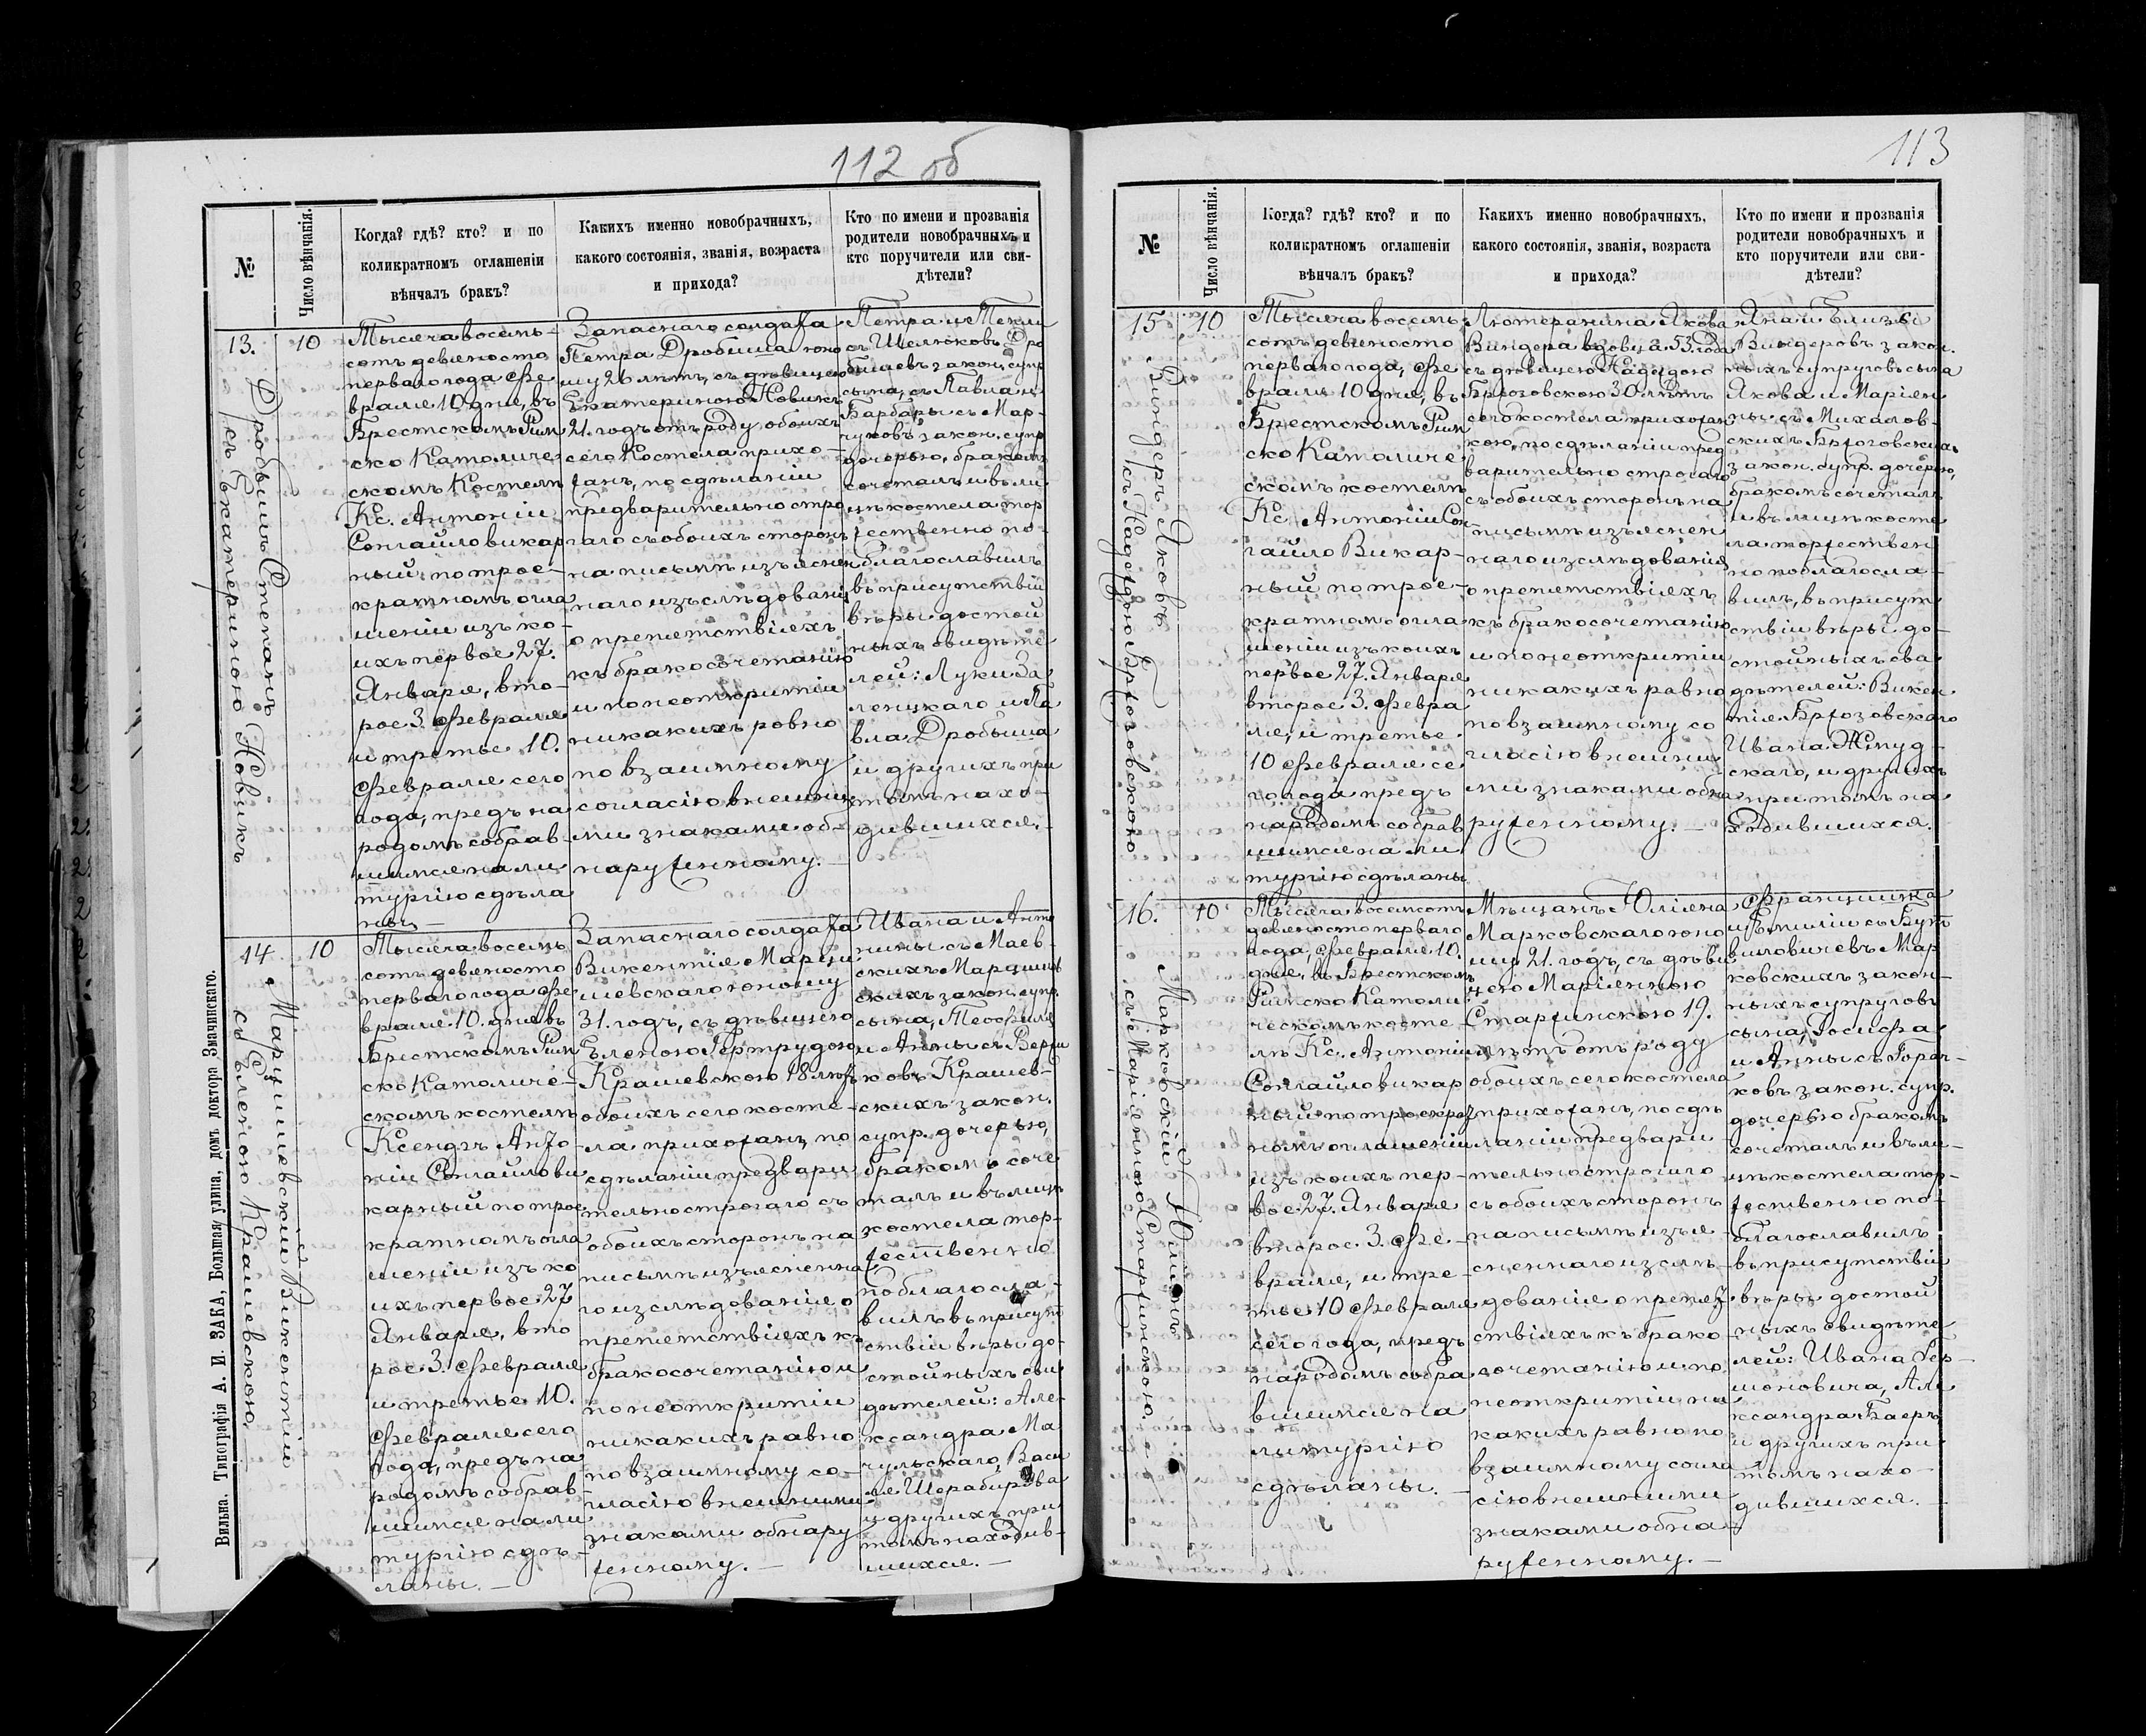 112 об
№
Число вѣнчанія.
Когда? гдѣ? кто? и по
коликратномъ оглашеніи
вѣнчалъ бракъ?
Какихъ именно новобрачныхъ,
какого состоянія, званія, возраста
и прихода?
Кто по имени и прозванія
родители новобрачныхъ и
кто поручители или сви-
дѣтели?
13.
10
Дробишъ Степанъ
съ Екатериною Новикъ
Тысяча восемь-
сотъ девяносто
перваго года Фе
враля 10 дня, въ
Брестскомъ Рим
ско Католиче
скомъ Костелѣ
Кс. Антоній
Сонгайло викар
ный по трое-
кратномъ огла
шеніи изъ ко-
ихъ первое 27.
Января, вто-
рое 3. Февраля
и третье 10.
Февраля сего
года, предъ на
родомъ собрав-
шимся на ли
тургію сдѣла
ны.
Запаснаго солдата
Петра Дробиша юно
шу 26 лѣтъ, съ дѣвицею
Екатериною Новикъ
21. годъ отъ роду обоихъ
сего Костела прихо-
жанъ, по сдѣланіи
предварительно стро
гаго съ обоихъ сторонъ
на письмѣ изъяснен
наго изъслѣдованія
о препятствіяхъ
къ бракосочетанію
и по неоткритіи
никакихъ ровно
по взаимному
согласію внѣшни
ми знаками об-
наруженному.
Петра и Текли
съ Шелюковъ Дро
бишевъ закон. супр
сына, съ Павла и
Барбары съ Мар-
чуковъ закон. супр
дочерью, бракомъ
сочеталъ и въ ли
цѣ костела тор
жественно по-
благославилъ
въ присутствіи
вѣры достой
ныхъ свидѣте
лей: Луки За
ленцкаго и Па
вла Дробиша
и другихъ при
томъ нахо-
дившихся.
14.
10
Марцишевскій Викентій
съ Еленою Крашевскою
Тысяча восемь
сотъ девяносто
перваго года Фе
враля 10. дня въ
Брестскомъ Рим
ско Католиче-
скомъ костелѣ
Ксендзъ Анто-
ній Сонгайло ви
карный по трое
кратномъ огла
шеніи изъ ко
ихъ первое 27
Января, вто
рое 3. Февраля
и третье 10.
Февраля сего
года, предъ на
родомъ собрав-
шимся на ли
тургію сдѣ-
ланы.
Запаснаго солдата
Викентія Марци
шевскаго юношу
31. годъ, съ дѣвицею
Еленою Гертрудою
Крашевскою 18 лѣтъ
обоихъ сего косте-
ла прихожанъ, по
сдѣланіи предвари
тельно строгаго съ
обоихъ сторонъ на
письмѣ изъясненна
го изслѣдованія о
препятствіяхъ къ
бракосочетанію и
по неоткритіи
никакихъ равно
по взаимному со-
гласію внѣшними
знаками обнару
женному.
Ивана и Анто
нины съ Маев-
скихъ Марцишев
скихъ закон. супр.
сына, Теофиля
и Анны съ Верси
ковъ Крашев-
скихъ закон.
супр. дочерью,
бракомъ соче
талъ и въ лицѣ
костела тор-
жественно
поблагосла-
вилъ въ присут
ствіи вѣры до-
стойныхъ сви
дѣтелей: Але-
ксандра Ма
чульскаго, Васи
ля
и другихъ при
томъ находив-
шихся.
Вильна. Типографія А. И. ЗАКА, Большая улица, домъ доктора Змачинскаго.
113
№
Число вѣнчанія.
Когда? гдѣ? кто? и по
коликратномъ оглашеніи
вѣнчалъ бракъ?
Какихъ именно новобрачныхъ,
какого состоянія, званія, возраста
и прихода?
Кто по имени и прозванія
родители новобрачныхъ и
кто поручители или сви-
дѣтели?
15
10
Виндеръ Яковъ
съ Надеждою Бржозовскою
Тысяча восемь
сотъ девяносто
перваго года, Фе
враля 10 дня, въ
Брестскомъ Рим
ско Католиче
скомъ костелѣ
Кс. Антоній Сон
гайло Викар-
ный по трое-
кратномъ огла
шеніи изъ коихъ
первое 27. Января
второе 3. Февра
ля, и третье
10 Февраля се
го года предъ
народомъ собрав
шимся на ли
тургію сдѣланы
Лютеранина Якова
Виндера вдовца 53. года
съ дѣвицею Надеждою
Бржозовскою 30 лѣтъ
сего костела прихожан
кою, по сдѣланіи пред
варительно строгаго
съ обоихъ сторонъ на
письмѣ изъяснен
наго изслѣдованія
о препятствіяхъ
къ бракосочетанію
и по неоткритіи
никакихъ равно
по взаимному со
гласію внѣшни
ми знаками обна
руженному.
Яна и Елизы
Виндеровъ закон.
ныхъ супруговъ сына
Якова и Маріан
ны съ Михалов-
скихъ Бржозовскихъ
закон. супр. дочерью,
бракомъ сочеталъ
и въ лицѣ косте
ла торжествен
но поблагосла-
вилъ, въ присут
ствіи вѣры до-
стойныхъ сви
дѣтелей: Викен
тія Бржозовскаго
Ивана Жмуд-
скаго, и другихъ
при томъ на
ходившихся.
16.
10
Марковскій Юліянъ
съ Маріанною Старжинскою.
Тысяча восемсотъ
девяносто перваго
года, Февраля 10.
дня, въ Брестскомъ
Римско Католи
ческомъ косте-
лѣ Кс. Антоній
Сонгайло викар
ный по троекрат
номъ оглашеніи
изъ коихъ пер-
вое 27. Января
второе 3. Фе-
враля, и тре-
тье 10 Февраля
сего года, предъ
народомъ собра
вшимся на
литургію
сдѣланы.
Мѣщанъ Юліяна
Марковскаго юно
шу 21. годъ, съ дѣви
цею Маріанною
Старжинскою 19.
лѣтъ отъ роду
обоихъ сего костела
прихожанъ, по сдѣ
ланіи предвари-
тельно строгаго
съ обоихъ сторонъ
на письмѣ изъя-
сненнаго изслѣ-
дованія о препят
ствіяхъ къ брако
сочетанію и по
неоткритіи ни
какихъ равно по
взаимному согла
сію внѣшними
знаками обна-
руженному.
Францишка
и Эмиліи съ Бут
виловичевъ Мар
ковскихъ закон-
ныхъ супруговъ
сына, Іосифа
и Анны съ Горач-
ковъ закон. супр.
дочерью бракомъ
сочеталъ и въ ли-
цѣ костела тор-
жественно по-
благославилъ
въ присутствіи
вѣры достой
ныхъ свидѣте
лей: Ивана Гер-
шоновича, Але
ксандра Баеръ
и другихъ при
томъ нахо-
дившихся.